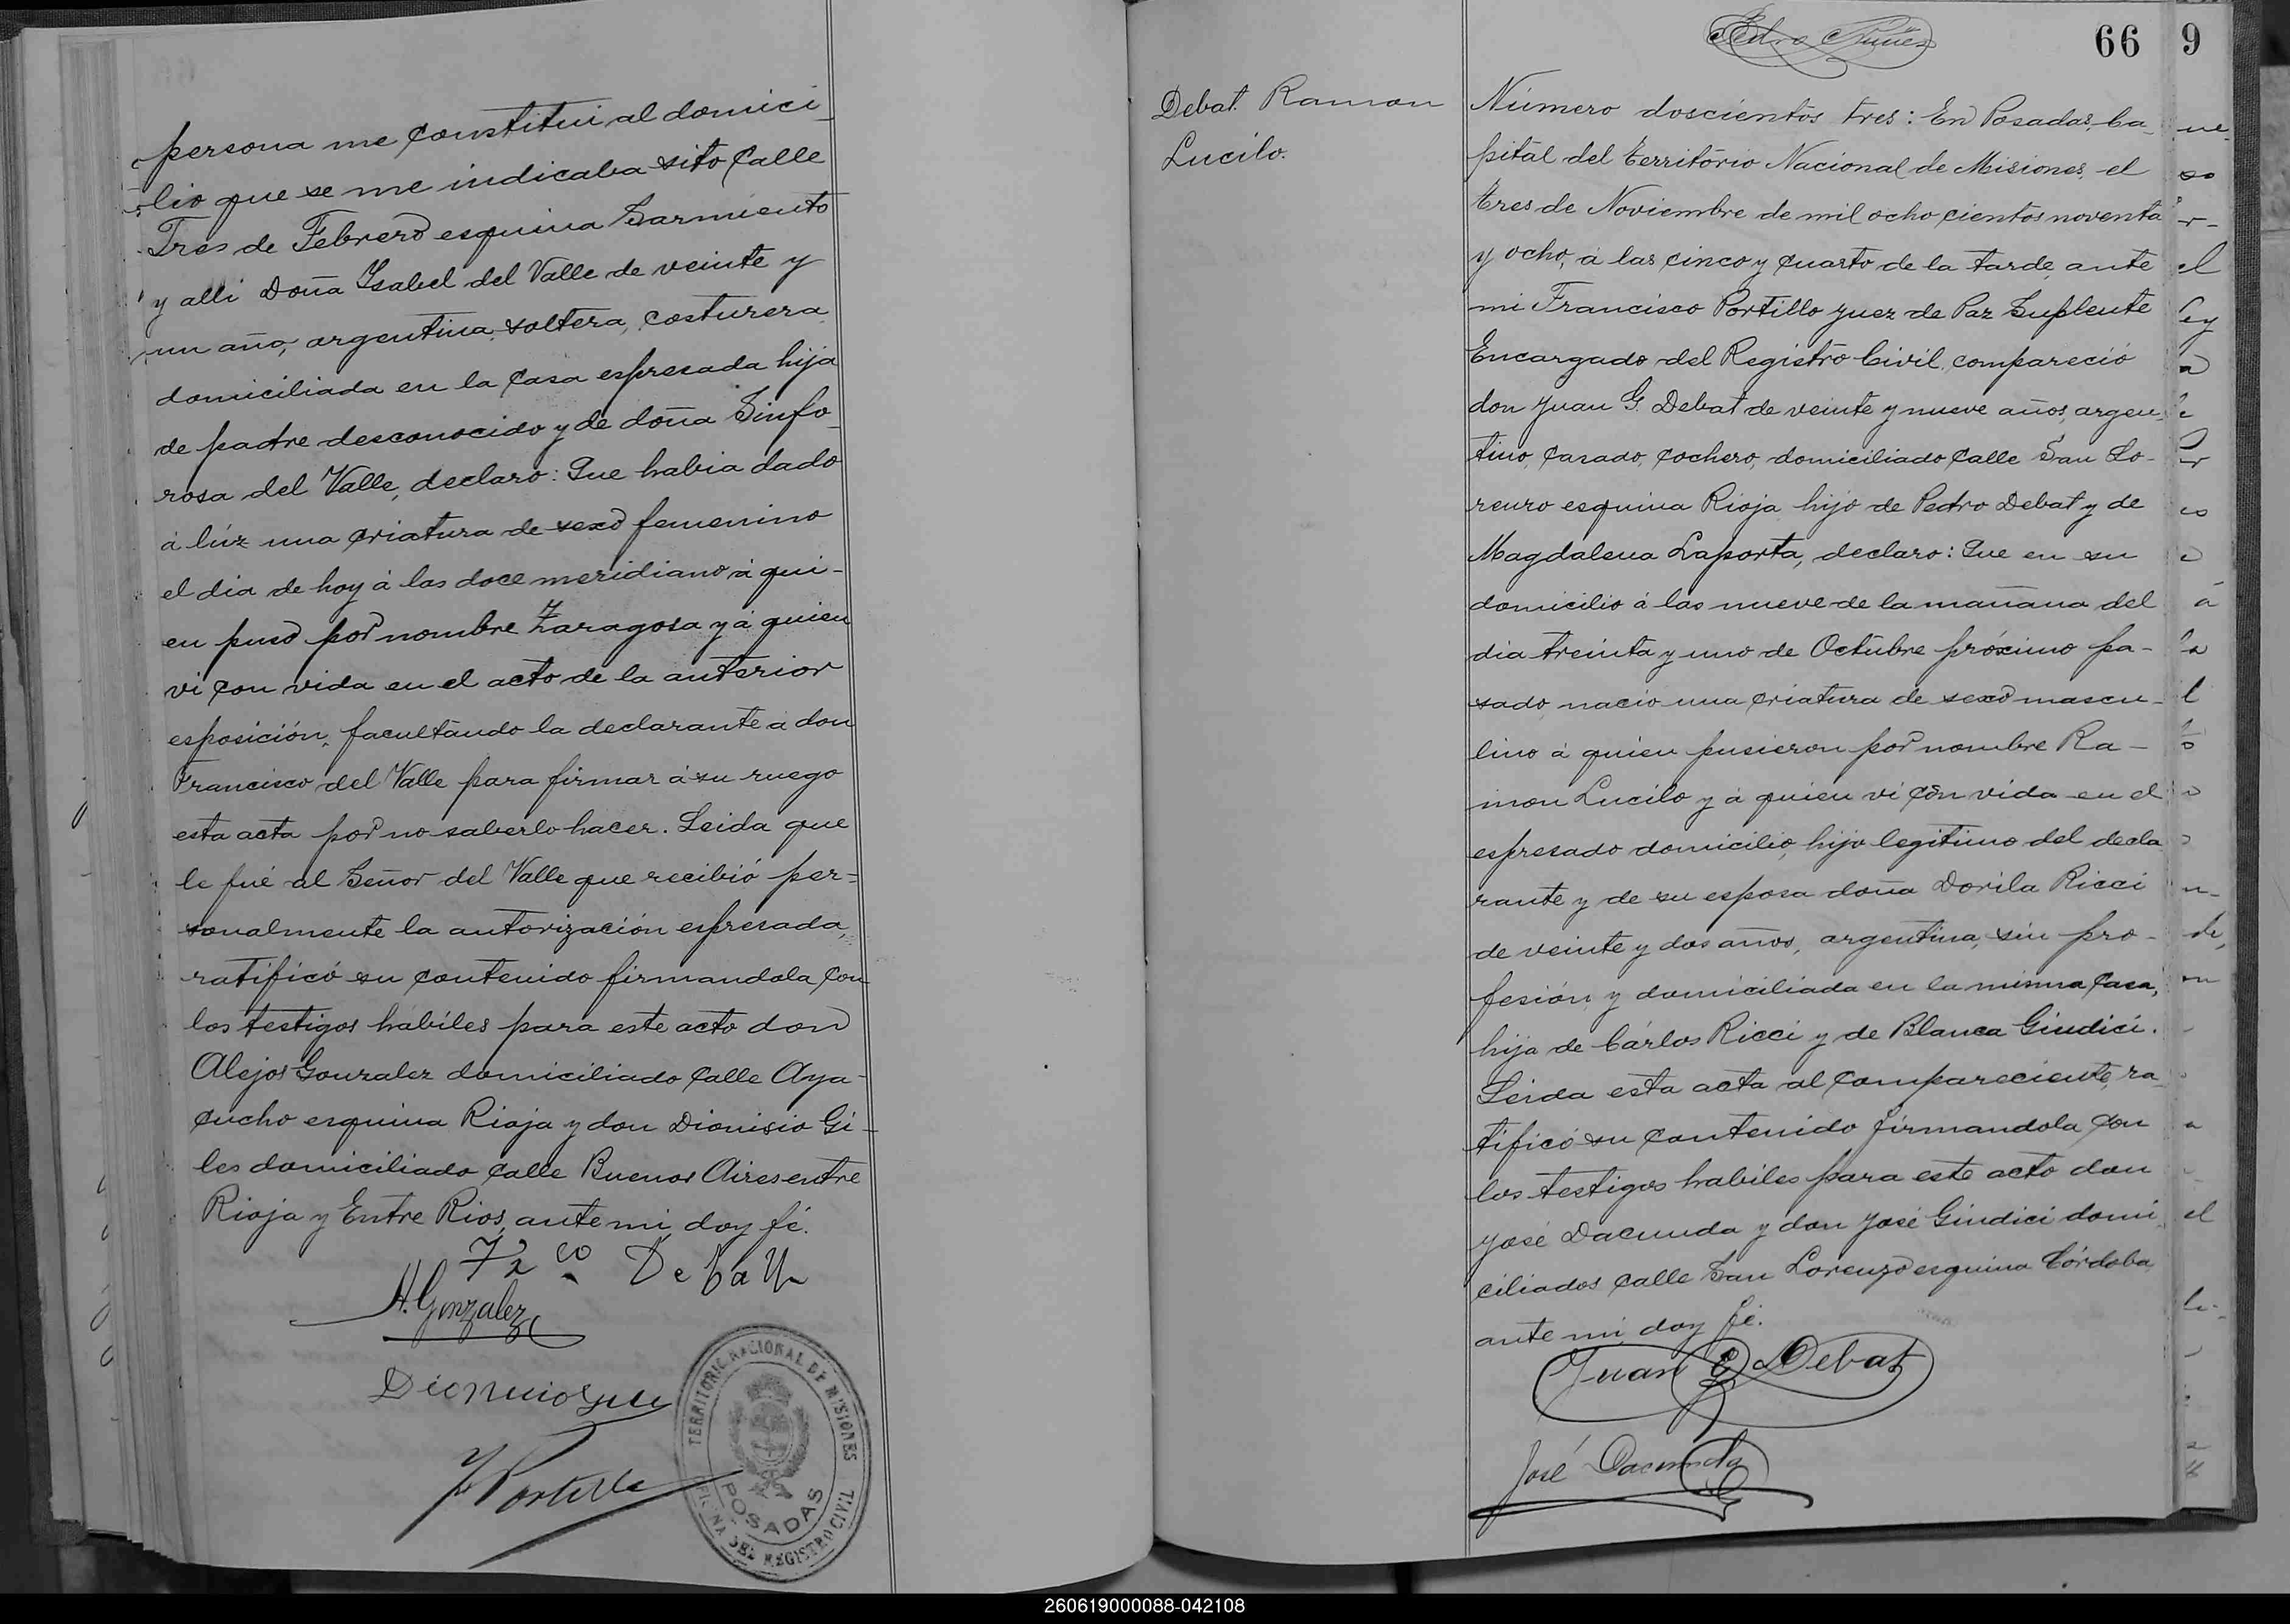 persona me constitui al domici-
lio que se me indicaba sito calle
Tres de Febrero esquina Sarmiento
y alli Doña Ysabel del Valle de veinte y
un año, argentina, soltera, costurera
domiciliada en la casa espresada hija
de padre desconocido y de doña Sinfo-
rosa del Valle, declaro: Que habia dado
á lúz una criatura de sexo femenino
el dia de hoy á las doce meridiano á qui-
en puso por nombre Zaragosa y á quien
vi con vida en el acto de la anterior
esposición, facultando la declarante a don
Francisco del Valle para firmar á su ruego
esta acta por no saberlo hacer. Leida que
le fué al Señor del Valle que recibió per=
sonalmente la autorización espresada,
ratificó su contenido firmandola con
los testigos hábiles para este acto don
Alejos Gonzalez domiciliado calle Aya-
cucho esquina Rioja y don Dionisio Gi-
les domiciliado calle Buenos Aires entre
Rioja y Entre Rios, ante mi doy fé.
A. Gonzalez
TERRITORIO NACIONAL DE MISIONES
POSADAS
OFICINA DEL REGISTRO CIVIL
Pedro Nuñez
66
9
Debat. Ramon
Lucilo.
Número doscientos tres: En Posadas, Ca-
pital del Territorio Nacional de Misiones, el
tres de Noviembre de mil ocho cientos noventa
y ocho, á las cinco y cuarto de la tarde, ante
mi Francisco Portillo Juez de Paz Suplente
Encargado del Registro Civil, compareció
don Juan G. Debat de veinte y nueve años, argen-
tino, casado, cochero, domiciliado calle San Lo-
renzo esquina Rioja hijo de Pedro Debat y de
Magdalena Laporta, declaro: Que en su
domicilio á las nueve de la mañana del
dia treinta y uno de Octubre próximo pa-
sado, nacio una criatura de sexo mascu-
lino á quien pusieron por nombre Ra-
mon Lucilo y á quien vi con vida en el
espresado domicilio, hijo legitimo del decla
rante y de su esposa doña Dorila Ricci
de veinte y dos años, argentina, sin pro-
fesión y domiciliada en la misma casa,
hija de Cárlos Ricci y de Blanca Giudici.
Leida esta acta al compareciente, ra
tificó su contenido firmandola con
los testigos habiles para este acto don
José Dacunda y don José Giudici domi
ciliados calle San Lorenzo esquina Córdoba
ante mi doy fé.
Juan G Debat
José Dacunda
260619000088-042108